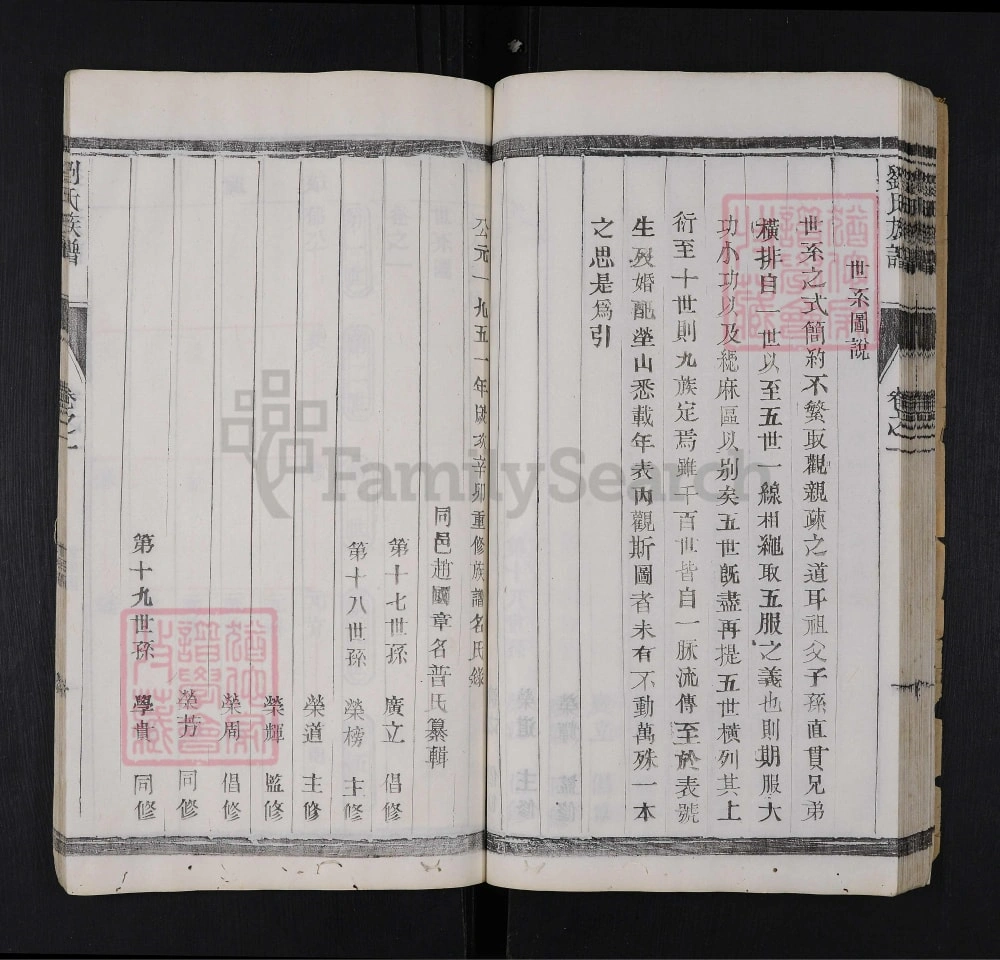 劉氏族譜
卷之一
世系圖說
世系之式簡約不繁取觀親疎之道耳祖父子孫直貫兄弟
橫排自一世以至五世一線相繩取五服之義也則期服大
功小功以及緦麻區以別矣五世既盡再提五世橫列其上
衍至十世則九族定焉雖千百世皆自一脉流傳至於表號
生歿婚配塋山悉載年表內觀斯圖者未有不動萬殊一本
之思是爲引
公元一九五一年歲次辛卯重修族譜名氏錄
同邑趙國章名普氏纂輯
第十七世孫 廣立 倡修
第十八世孫 榮榜 主修
榮道 主修
榮輝 監修
榮周 倡修
榮芳 同修
第十九世孫 學貴 同修
劉氏族譜
卷之一
FamilySearch